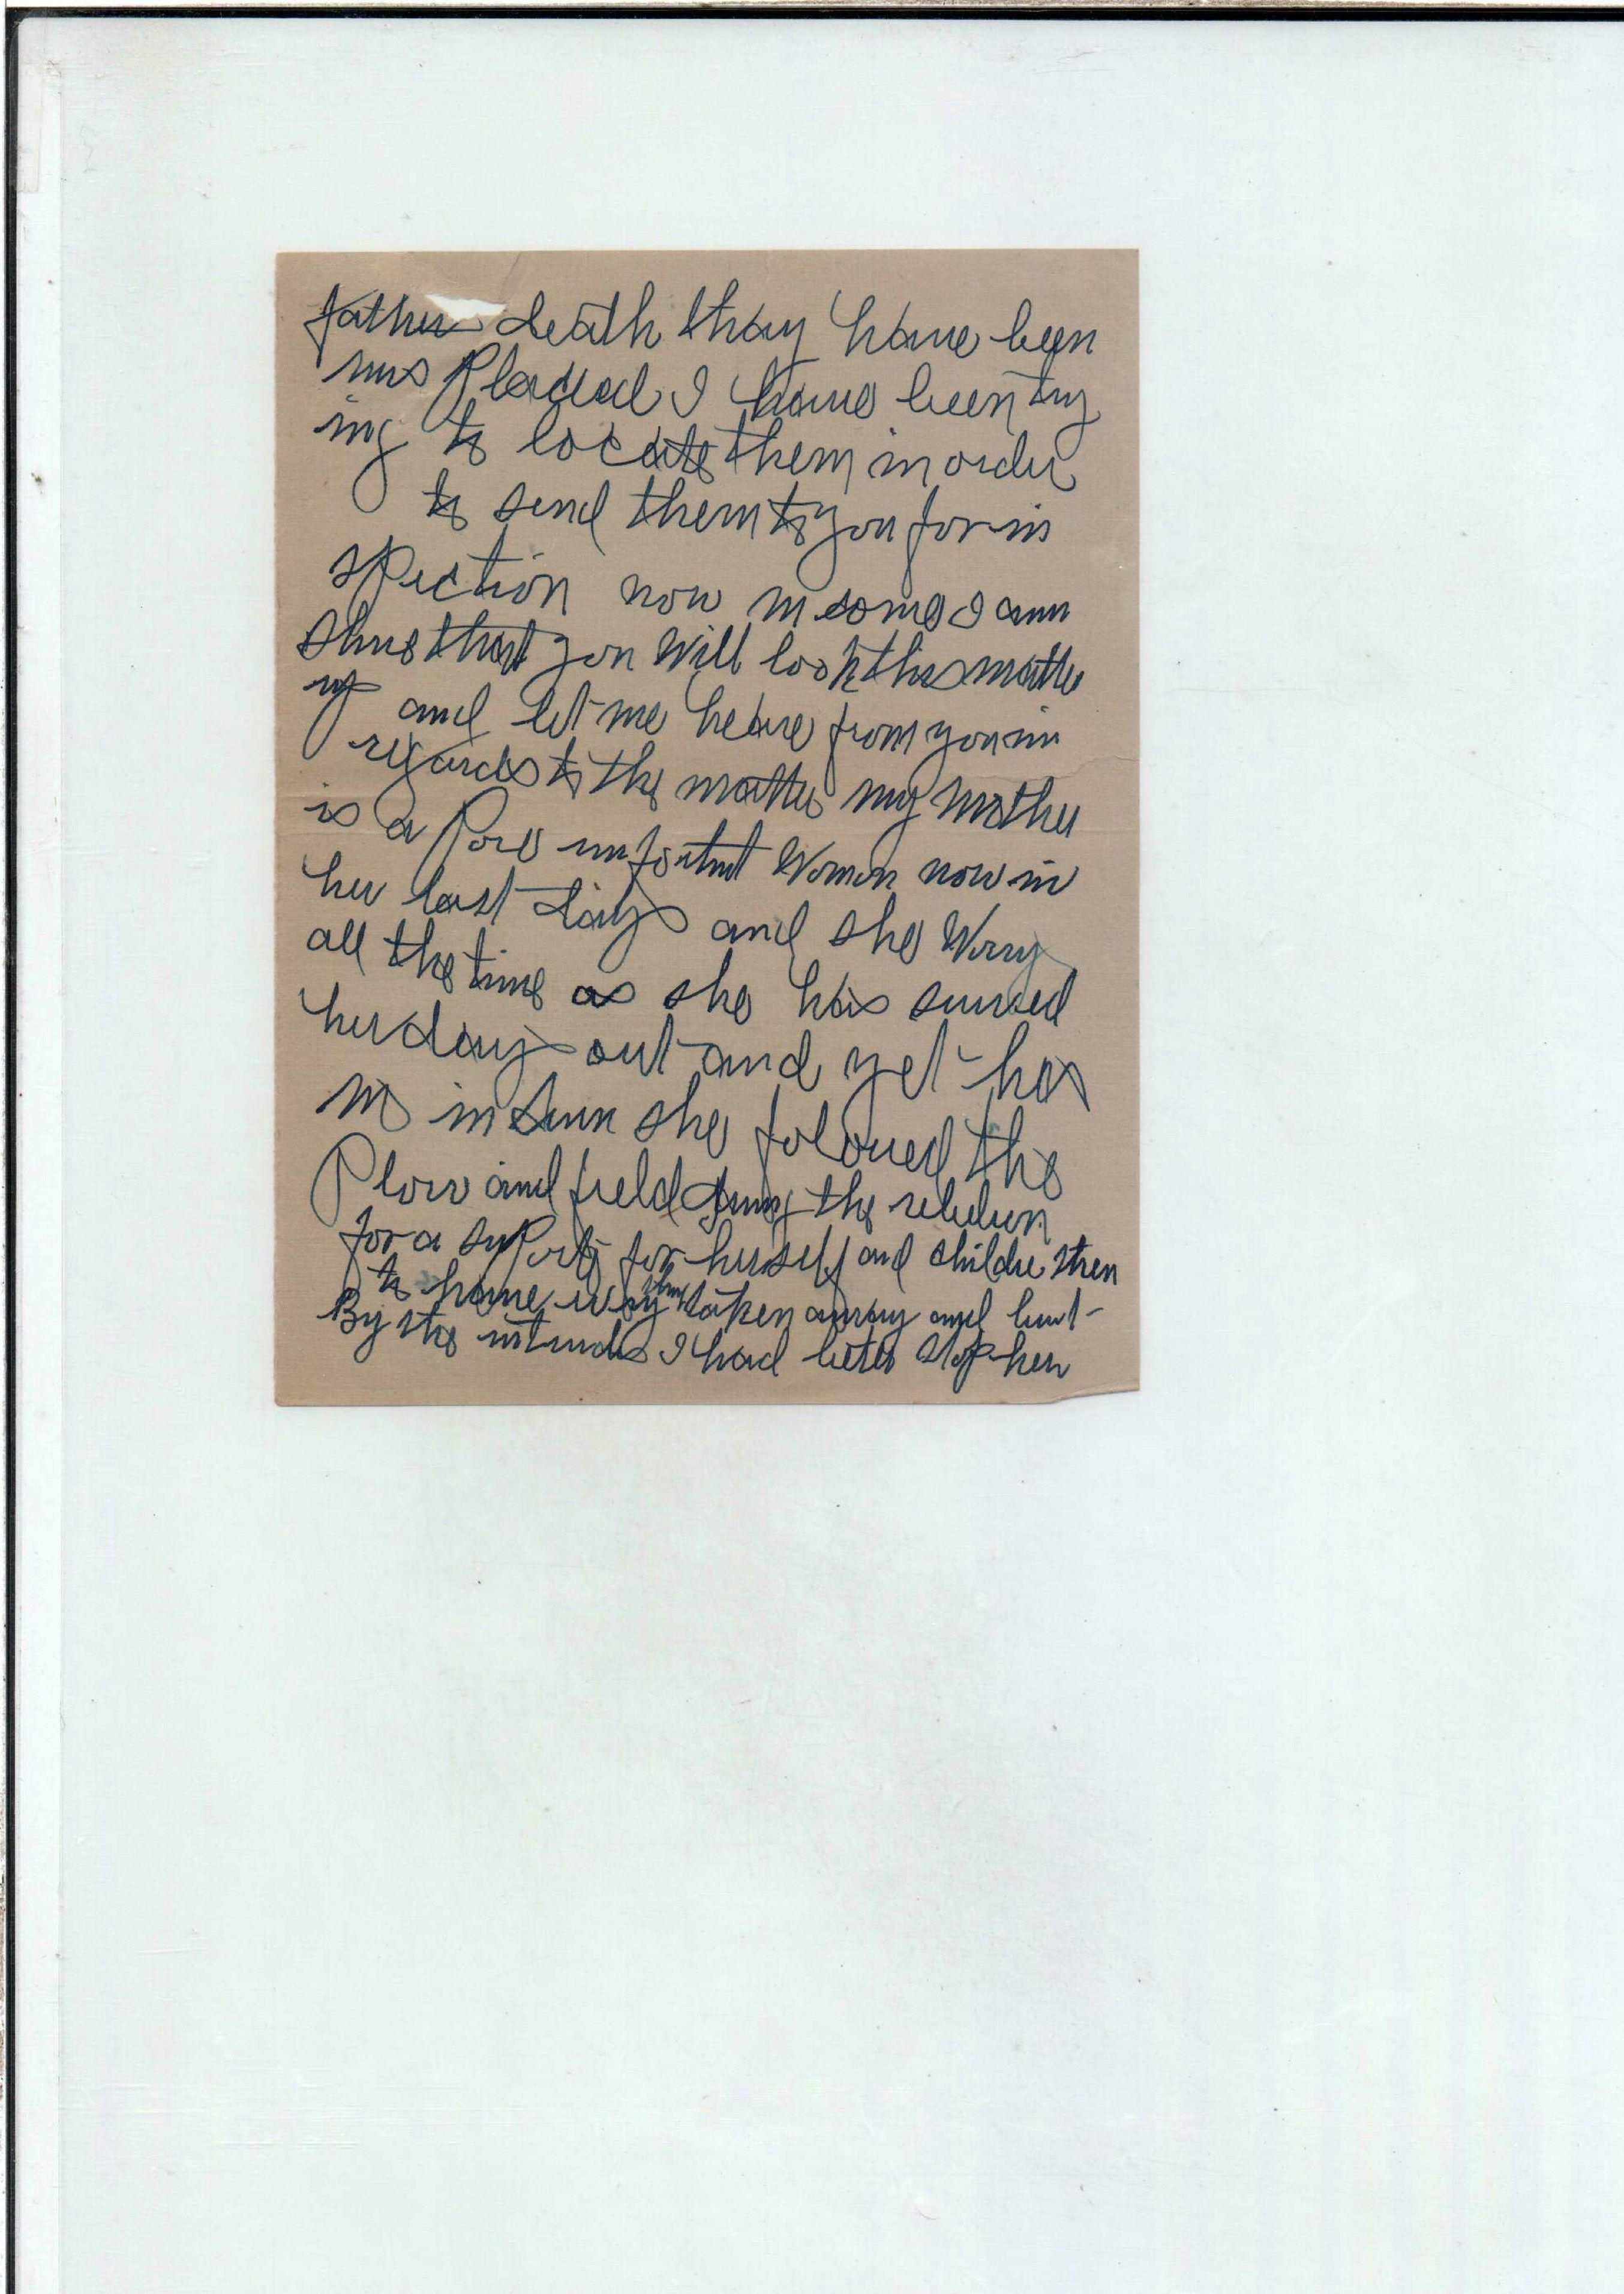 father death thay have been
mis Placed I have been try
ing to locate them in order
to send them to you for in
spection now in some I am
shure that you will look this matter
up and let me heare from you in
regards to the matter my mother
is a Pore unfortnt Woman now in
her last days and she Wory
all the time as she has
her days out and yet has
no she folowed the
Plow and field the rebelion
for a suport for herself and childre then
to have taken away and
By the I had beter stop her